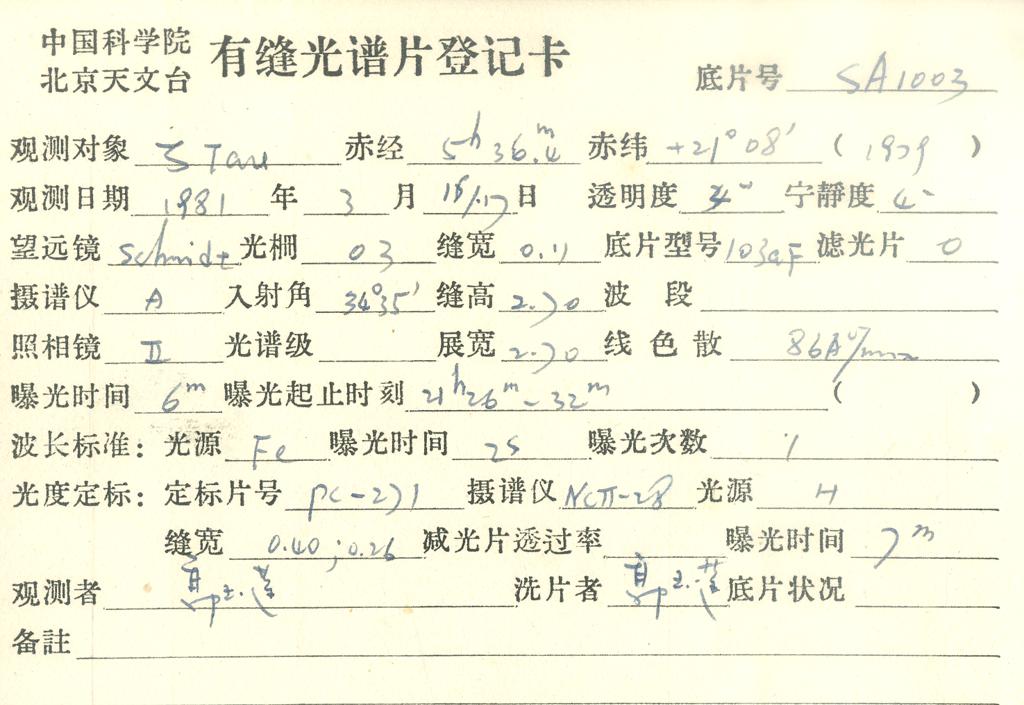 中国科学院
北京天文台
有缝光谱片登记卡
底片号 SA1003
观测对象 ζ Tau 赤经 5h 36.m4 赤纬 +21° 08′ (1979)
观测日期 1981 年 3 月 16/17 日 透明度 宁静度
望远镜 Schmidt 光栅 03 缝宽 0.11 底片型号 103aF 滤光片 0
摄谱仪 A 入射角 34°35′ 缝高 2.70 波段
照相镜 II 光谱级 展宽 2.70 线色散 86A°/mm
曝光时间 6m 曝光起止时刻 21h26m-32m ( )
波长标准: 光源 Fe 曝光时间 2s 曝光次数 1
光度定标: 定标片号 PC-271 摄谱仪 光源 H
缝宽 0.40;0.26 减光片透过率 曝光时间 7m
观测者 郭玉莲 洗片者 郭玉莲 底片状况
备註